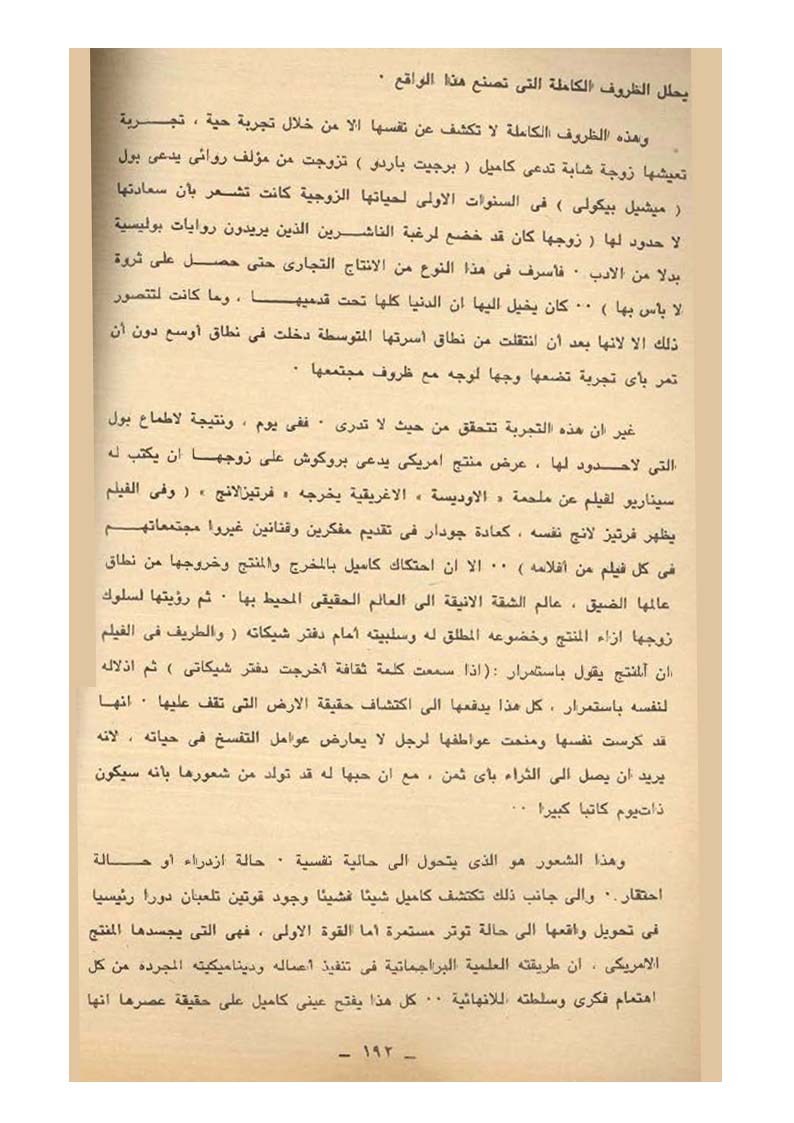 يحلل الظروف الكاملة التى تصنع هذا الواقع ·
وهذه الظروف الكاملة لا تكشف عن نفسها الا من خلال تجربة حية ، تجـــربة
تعيشها زوجة شابة تدعى كاميل ( برجيت باردو ) تزوجت من مؤلف روائى يدعى بول
( ميشيل بيكولى ) فى السنوات الاولى لحياتها الزوجية كانت تشـعر بأن سعادتها
لا حدود لها ( زوجها كان قد خضع لرغبة الناشرين الذين يريدون روايات بوليسية
بدلا من الادب · فأسرف فى هذا النوع من الانتاج التجارى حتى حصـل على ثروة
لا بأس بها ) ·· كان يخيل اليها ان الدنيا كلها تحت قدميهـــا ، وما كانت لتتصور
ذلك الا لانها بعد أن انتقلت من نطاق أسرتها المتوسطة دخلت فى نطاق أوسع دون أن
تمر بأى تجربة تضعها وجها لوجه مع ظروف مجتمعها ·
غير ان هذه التجربة تتحقق من حيث لا تدرى · ففى يوم ، ونتيجة لاطماع بول
التى لاحـدود لها ، عرض منتج امريكى يدعى بروكوش على زوجهـا ان يكتب له
سيناريو لفيلم عن ملحمة « الاوديسة » الاغريقية يخرجه « فرتيزلانج » ( وفى الفيلم
يظهر فرتيز لانج نفسه ، كعادة جودار فى تقديم مفكرين وفنانين غيروا مجتمعاتهـم
فى كل فيلم من أفلامه ) ·· الا ان احتكاك كاميل بالمخرج والمنتج وخروجها من نطاق
عالمها الضيق ، عالم الشقة الانيقة الى العالم الحقيقى المحيط بها · ثم رؤيتها لسلوك
زوجها ازاء المنتج وخضوعه المطلق له وسلبيته أمام دفتر شيكاته ( والطريف فى الفيلم
ان المنتج يقول باستمرار :(اذا سمعت كلمة ثقافة أخرجت دفتر شيكاتى ) ثم اذلاله
لنفسه باستمرار ، كل هذا يدفعها الى اكتشاف حقيقة الارض التى تقف عليها · انهـا
قد كرست نفسها ومنحت عواطفها لرجل لا يعارض عوامل التفسخ فى حياته ، لانه
يريد ان يصل الى الثراء بأى ثمن ، مع ان حبها له قد تولد من شعورها بأنه سيكون
ذات‌يوم كاتبا كبيرا ··
وهذا الشعور هو الذى يتحول الى حالية نفسية · حالة ازدراء أو حـــالة
احتقار · والى جانب ذلك تكتشف كاميل شيئا فشيئا وجود قوتين تلعبان دورا رئيسيا
فى تحويل واقعها الى حالة توتر مستمرة أما القوة الاولى ، فهى التى يجسدها المنتج
الامريكى ، ان طريقته العلمية البراجماتية فى تنفيذ أعماله وديناميكيته المجرده من كل
اهتمام فكرى وسلطته اللانهائية ·· كل هذا يفتح عينى كاميل على حقيقة عصرها انها
– ١٩٢ –